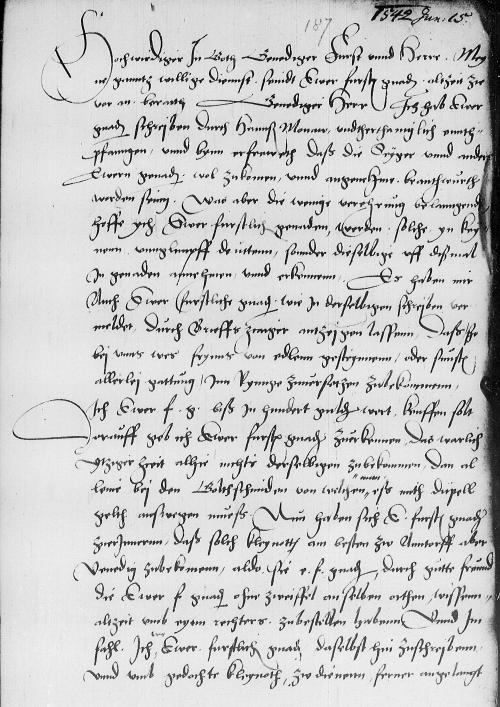 1542 Jun. 15.
187
Hochwirdiger In Gott Genediger Furst unnd Herre. Mey
ne gantz willige dienst seindt Ewer furstl gnad. altzeit zu
vor an beraith Genediger Herr Ich hab Ewer
gnad. schreiben durch Hanns Monaw, undtherthaniglich enth
pfangen, unnd bynn erfreweth daß die Seyger unnd ander
Ewern gnad. wol zukomen, unnd angeneme beantwurth
worden seint. Was aber die wenige verehrung belangend
hoffe ych Ewer furstlich genaden, werden solche yn key
nem unnglympff deutten, sonder dieselbige uff dißmal
In genaden annehmen, unnd erkennenn. Es haben mir
Auch Ewer furstliche gnad. wie In derselbigen schreiben ver
meldet, durch Brieffs zeiger antzeigen lassenn, Daß Ste
bei unns was feyns von edlem gesteynnenn, oder sunsten
allerlei gattung, Im
Ich Ewer f. g. biß In hundert guld. wert, kauffen solt
Dorauff geb ich Ewer furstl gnad. zuerkennen, das warlich
ytziger zeit alhie nichts derselbigen zubekommen, dan al
leine bei den Goldtschmiden von welchen man
auswegen mueß. Nun haben sich E. furstl gnad.
zuerynnern, daß solch kleynott am besten zw Anntorff aber
Venedig zubekomenn, aldo sie e. f. gnad. durch gutte freund
die Ewer f gnad. ohne zweiffel an selben orthen, wissenn
altzeit umb eynn rechters zubestellen habenn. Unnd Im
fahl Ich Ewer furstlich gnad. daselbst hin zuschreibenn,
unnd umb gedachte kleynoth, zw dienenn, ferner angelangt